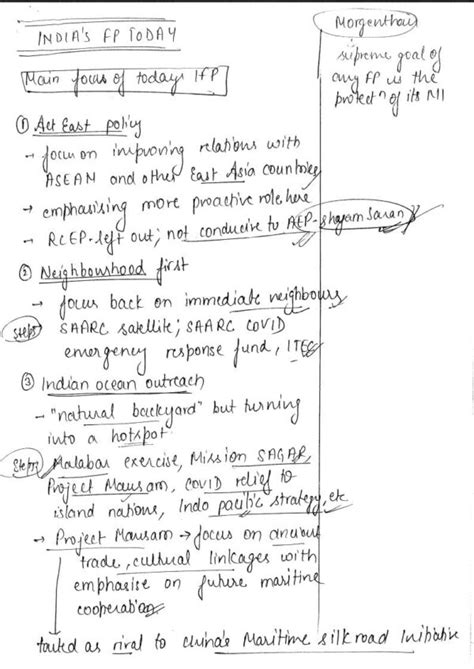 INDIA'S FP TODAY
Main focus of todays IFP
Morgenthau
supreme goal of
any FP is the
protectn of its NI
① Act East policy
→ focus on improving relations with
ASEAN and other East Asia countries
→ emphasising more proactive role here
→ RCEP-left out; not conducive to AEP-Shyam Saran
② Neighbourhood first
→ focus back on immediate neighbours
Steps SAARC satellite; SAARC COVID
emergency response fund, ITEC
③ Indian ocean outreach
- "natural backyard" but turning
into a hotspot
Steps Malabar exercise, Mission SAGAR,
Project Mausam, COVID relief to
island nations, Indo pacific strategy, etc
→ Project Mausam → focus on ancient
trade, cultural linkages with
emphasise on future maritime
cooperation
touted as rival to China's Maritime silk road Initiative